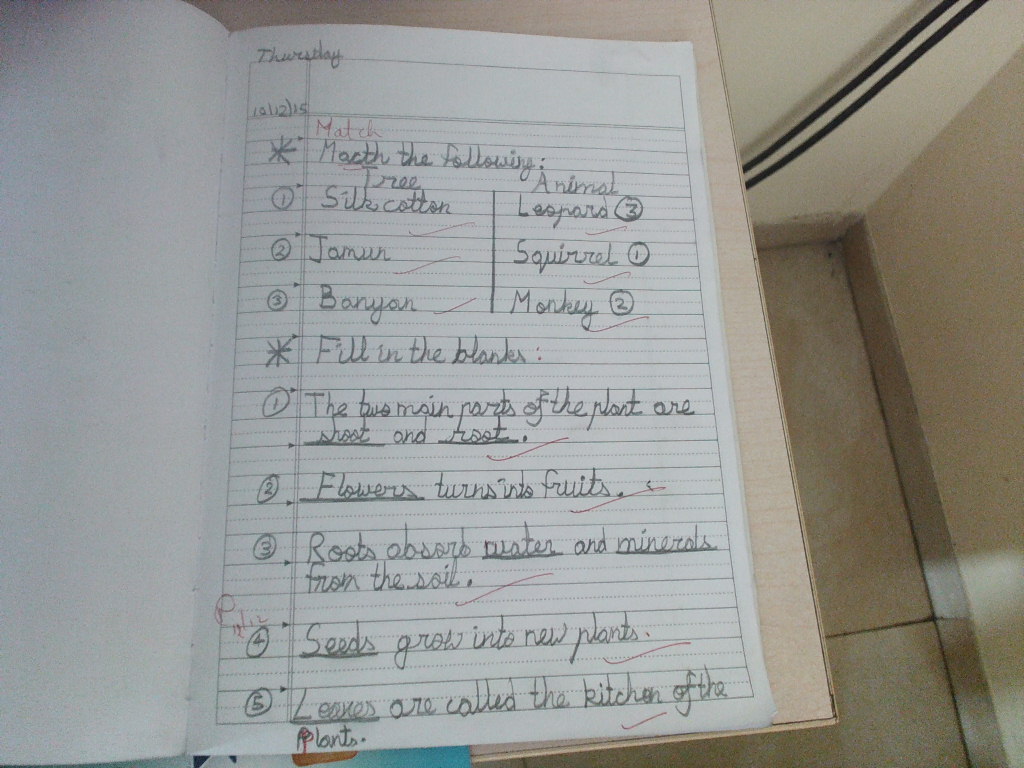 Thursday
10/12/15
Match
* Macth the following:
Tree Animal
① Silk cotton Leopard ③
② Jamun Squirrel ①
③ Banyan Monkey ②
* Fill in the blanks:
① The two main parts of the plant are
shoot and root.
② Flowers turns into fruits.
③ Roots absorb water and minerals
from the soil.
④ Seeds grow into new plants.
⑤ Leaves are called the kitchen of the
plants.